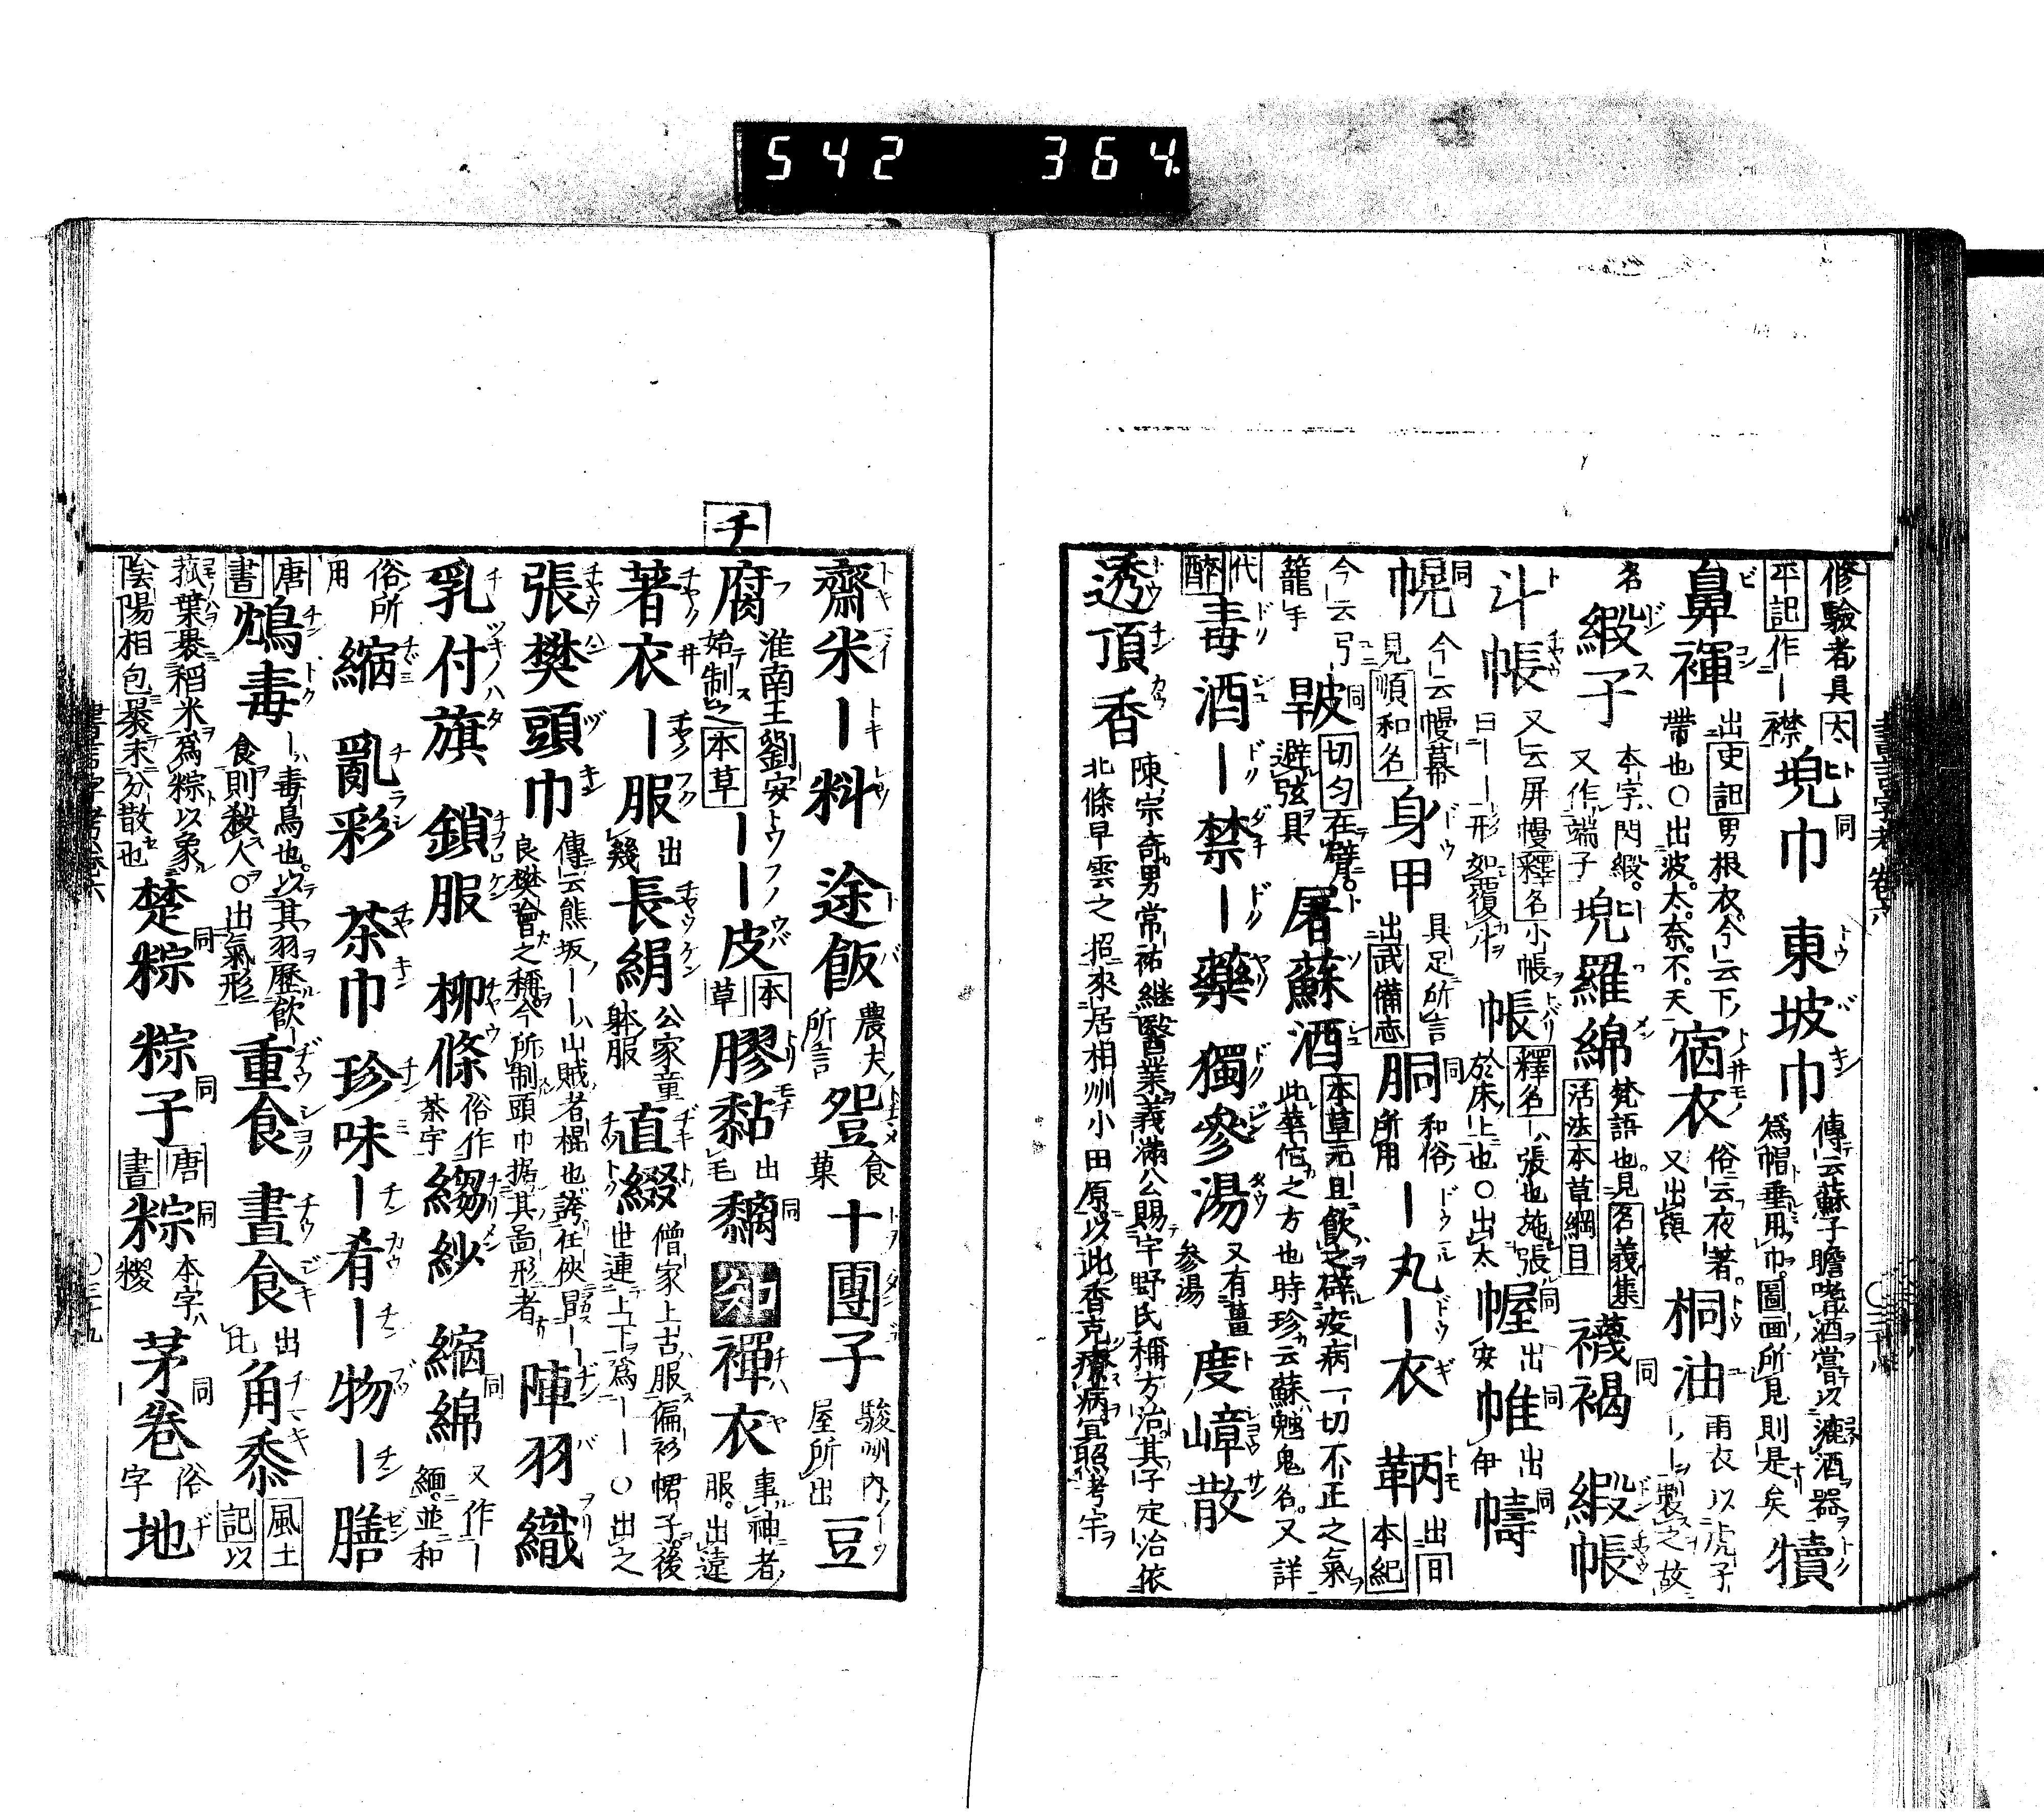 542 364.
修驗者具太平記作ー襟 兜巾同 東坡巾 傳云蘇子瞻嗜酒當以漉酒器爲帽垂用巾圖画所見則是矣 犢
鼻褌 出史記男根衣今云下帶也〇出波太奈不天 宿衣 俗云夜著又出與 桐油 雨衣以虎子ー製之故
名 緞子 本字閃緞又作端子 兜羅綿 梵語也見名義集活法本草綱目 襪褐同 緞帳
斗帳 又云屏幔釋名小帳曰ーー形如覆斗 帳 釋名ー張也施張於床上也〇出太 幄同出安 帷同出伊 幬同
幌同 今云幔幕見順和名 身甲 具足所言出武備志 胴同 和俗所用 ー丸 ー衣 鞆 出日本紀
今云弓籠手 㿺同 切匀在臂避弦具 屠蘇酒 本草元旦飲之辟疫病一切不正之氣此華佗之方也時珍云蘇魅鬼名又詳
代醉 毒酒 ー禁 ー藥 獨參湯 又有薑參湯 度嶂散
透頂香 陳宗奇男常祐継醫業義滿公賜宇野氏稱方治其子定治依北條早雲之招來居相州小田原以此香克療病冝照考宇
チ
齋米 ー料 途飯 農夫所言 𥁕 食菓 十團子 駿州内屋所出 豆
腐 淮南王劉安始制之本草 ーー皮 本草 膠黏 出毛 黐同 知 襅衣 事神者服出遠
著衣 ー服 出幾 長絹 公家童躰服 直綴 僧家上古服偏衫裙子後世連上下爲ーー〇出之
張樊頭巾 傳云熊坂ーー山賊者棍也誇任俠冒ー良樊噲之稱今所制頭巾据其畐形者 陣羽織
乳付旗 鎖服 柳條 俗作茶宇 縐紗 縮綿同 又作ー緬並和
俗所用 縮 亂彩 茶巾 珍味 ー肴 ー物 ー膳
唐書 鴆毒 ー毒鳥也以其羽歷飲食則殺人〇出氣形 重食 晝食 出比 角黍 風土記以
菰葉裹稻米爲粽以象陰陽相包裹未分散也 楚粽 粽子同 唐書 粽同 本字糉 茅卷同 俗字 地